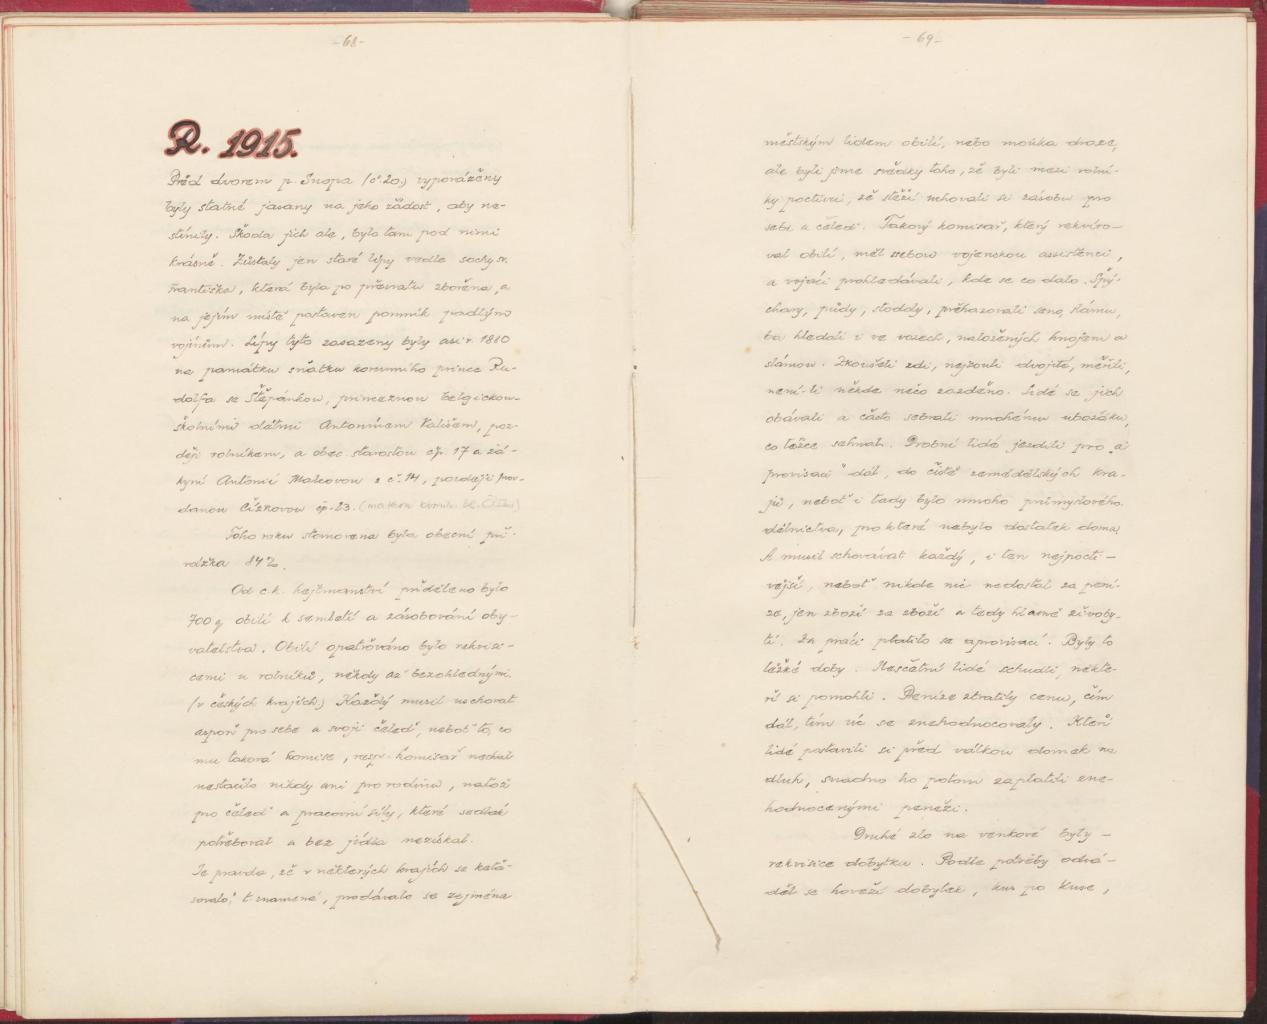 -68-
R. 1915.
Před dvorem p. Snopa (č. 20.) vyporáženy
byly statné jasany na jeho žádost, aby ne-
stínily. Škoda jich ale, bylo tam pod nimi
krásně. Zůstaly jen staré lípy vedle sochy sv.
Františka, která byla po převratu zbořena, a
na jejím místě postaven pomník padlým
vojínům. Lípy tyto zasazeny byly asi r. 1880
na památku sňatku korunního prince Ru-
dolfa se Štěpánkou, princeznou belgickou
školními dětmi Antonínem Vališem, poz-
ději rolníkem, a obec. starostou čp. 17 a žá-
kyní Antonií Matcovou z č. 14, později prov-
danou Čížkovou čp. 23. (matkou
Toho roku stanovena byla obecní při-
rážka 84%.
Od c. k. hejtmanství přiděleno bylo
700 q obilí k semletí a zásobování oby-
vatelstva. Obilí opatřováno bylo rekvisi-
cemi u rolníků, někdy až bezohlednými.
(v českých krajích.) Každý musil uschovat
aspoň pro sebe a svoji čeleď, neboť to, co
mu taková komise, resp. komisař nechal
nestačilo nikdy ani pro rodinu, natož
pro čeleď a pracovní síly, které sedlák
potřeboval a bez jídla nezískal.
Je pravda, že v některých krajích se keťa-
sovalo", t. znamená, prodávalo se zejména
-69-
městským lidem obilí, nebo mouka draze,
ale byli jsme svědky toho, že byli mezi rolní-
ky poctiví, že stěží uchovali si zásobu pro
sebe a čeleď. Takový komisař, který rekvíro-
val obilí, měl ssebou vojenskou assistenci,
a vojáci prohledávali, kde se co dalo. Špý-
chary, půdy, stodoly, přehazovali seno, slámu,
ba hledali i ve vozech, naložených hnojem a
slámou. Zkoušeli zdi, nejsou-li dvojité, měřili,
není-li někde něco zazděno. Lidé se jich
obávali a často sebrali mnohému ubožáku,
co těžce sehnal. Drobní lidé jezdili pro "a
provisaci" dál, do čistě zemědělských kra-
jů, neboť i tady bylo mnoho průmyslového
dělnictva, pro které nebylo dostatek doma.
A musil schovávat každý, i ten nejpocti-
vější, neboť nikde nic nedostal za pení-
ze, jen zboží za zboží a tedy hlavně živoby-
tí. Za práci platilo se aprovisací. Byly to
těžké doby. Nesčetní lidé schudli, někte-
ří si pomohli. Peníze ztratily cenu, čím
dál, tím víc se znehodnocovaly. Kteří
lidé postavili si před válkou domek na
dluh, snadno ho potom zaplatili zne-
hodnocenými penězi.
Druhé zlo na venkově byly
rekvisice dobytka. Podle potřeby odvá-
děl se hovězí dobytek, kus po kuse,